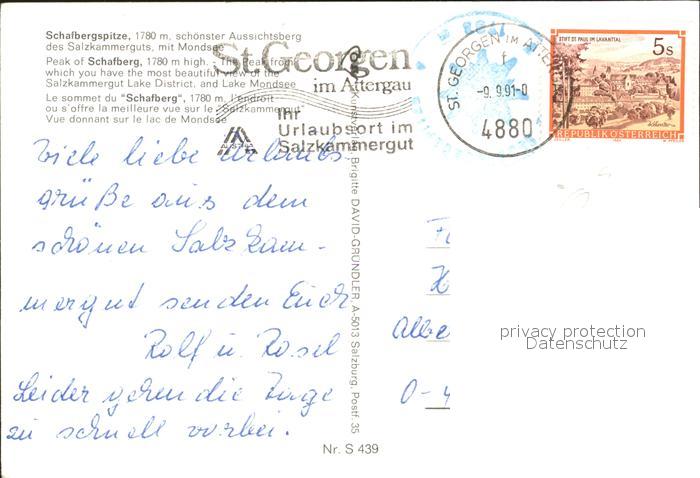 Schafbergspitze, 1780 m, schönster Aussichtsberg
des Salzkammerguts, mit Mondsee
Peak of Schafberg, 1780 m high. - The peak from
which you have the most beautiful view of the
Salzkammergut Lake District, and Lake Mondsee
Le sommet du "Schafberg", 1780 m, l'endroit
ou s'offre la meilleure vue sur le Salzkammergut
Vue donnant sur le lac de Mondsee
St. Georgen
im Attergau
Ihr
Urlaubsort im
Salzkammergut
ST. GEORGEN IM ATTER
f
-9. 9.91-0
4880
STIFT ST. PAUL IM LAVANTTAL
5s
REPUBLIK ÖSTERREICH
Viele liebe Urlaubs
grüße aus dem
schönen Salzkam-
mergut senden Euch
Rolf u. Rosel
Leider gehen die Tage
zu schnell vorbei.
Brigitte DAVID-GRÜNDLER, A-5013 Salzburg, Postf. 35
Albe
O-4
privacy protection
Datenschutz
Nr. S 439